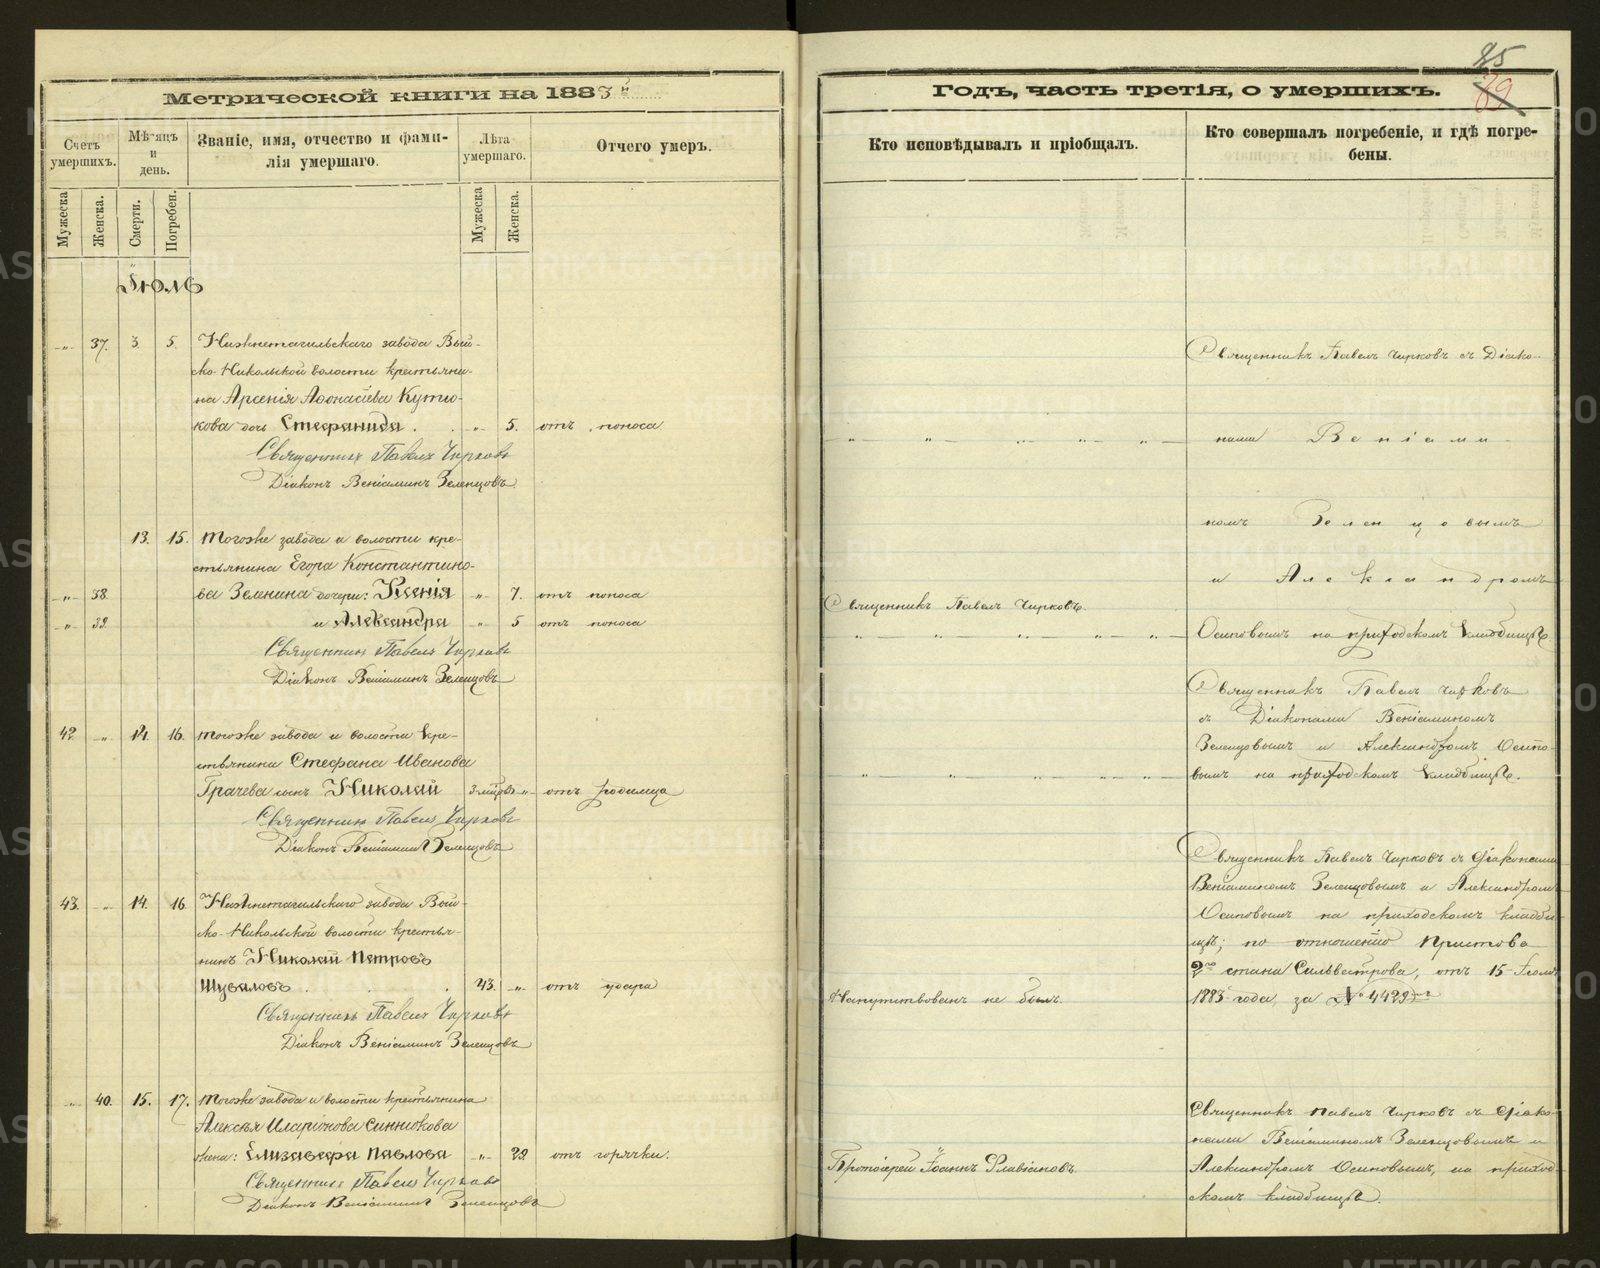 Метрической книги на 1883й
Счетъ умершихъ.
Мѣсяцъ и день.
Званіе, имя, отчество и фами-
лія умершаго.
Лѣта умершаго.
Отчего умеръ.
Мужеска
Женска.
Смерти.
Погребен.
Мужеска
Женска.
Іюль
-„- 37. 3. 5. Нижнетагильскаго завода Вый-
ско-Никольской волости крестьяни-
на Арсенія Аѳонасіева Кутю-
кова дочь Стефанида. -„- 5. отъ поноса
Священникъ Павелъ Чирковъ
Діаконъ Веніаминъ Зеленцовъ.
13. 15. Тогоже завода и волости кре-
стьянина Егора Константино-
-„- 38. ва Зеленина дочери: Ксенія -„- 7. отъ поноса
-„- 39. и Александра -„- 5 отъ поноса
Священникъ Павелъ Чирковъ
Діаконъ Веніаминъ Зеленцовъ
42. -„- 14. 16. Тогоже завода и волости кре-
стьянина Стефана Иванова
Грачева сынъ Николай 3 мѣцовъ -„- отъ родимца
Священникъ Павелъ Чирковъ
Діаконъ Веніаминъ Зеленцовъ
43. -„- 14. 16. Нижнетагильскаго завода Вый-
ско-Никольской волости крестья-
нинъ Николай Петровъ
Шуваловъ. 43. -„- отъ удара
Священникъ Павелъ Чирковъ
Діаконъ Веніаминъ Зеленцовъ
-„- 40. 15. 17. Тогоже завода и волости крестьянина
Алексѣя Иларіонова Синюкова
жена: Елизавефа Павлова -„- 29. отъ горячки.
Священникъ Павелъ Чирковъ
Діаконъ Веніаминъ Зеленцовъ
85
89
Годъ, часть третія, о умершихъ.
Кто исповѣдывалъ и пріобщалъ.
Кто совершалъ погребеніе, и гдѣ погре-
бены.
Священникъ Павелъ Чирковъ съ Діако-
-„- -„- -„- -„- -„- нами Веніами-
номъ Зеленцовымъ
и Александромъ
Священникъ Павелъ Чирковъ.
-„- -„- -„- -„- -„- Осиповымъ на приходскомъ кладбищѣ.
Священникъ Павелъ Чирковъ
съ Діаконами Веніаминомъ
Зеленцовымъ и Александромъ Осипо-
-„- -„- -„- -„- -„- вымъ на приходскомъ кладбищѣ.
Священникъ Павелъ Чирковъ съ діаконами
Веніаминомъ Зеленцовымъ и Александромъ
Осиповымъ на приходскомъ кладби-
щѣ; по отношенію Пристава
2го стана Сильвестрова, отъ 15 Іюля
Напутствованъ не былъ. 1883 года, за № 4429мъ
Священникъ Павелъ Чирковъ съ діако-
нами Веніаминомъ Зеленцовымъ и
Протоіерей Іоаннъ Флавіановъ. Александромъ Осиповымъ, на приход-
скомъ кладбищѣ.
METRIKI.GASO-URAL.RU